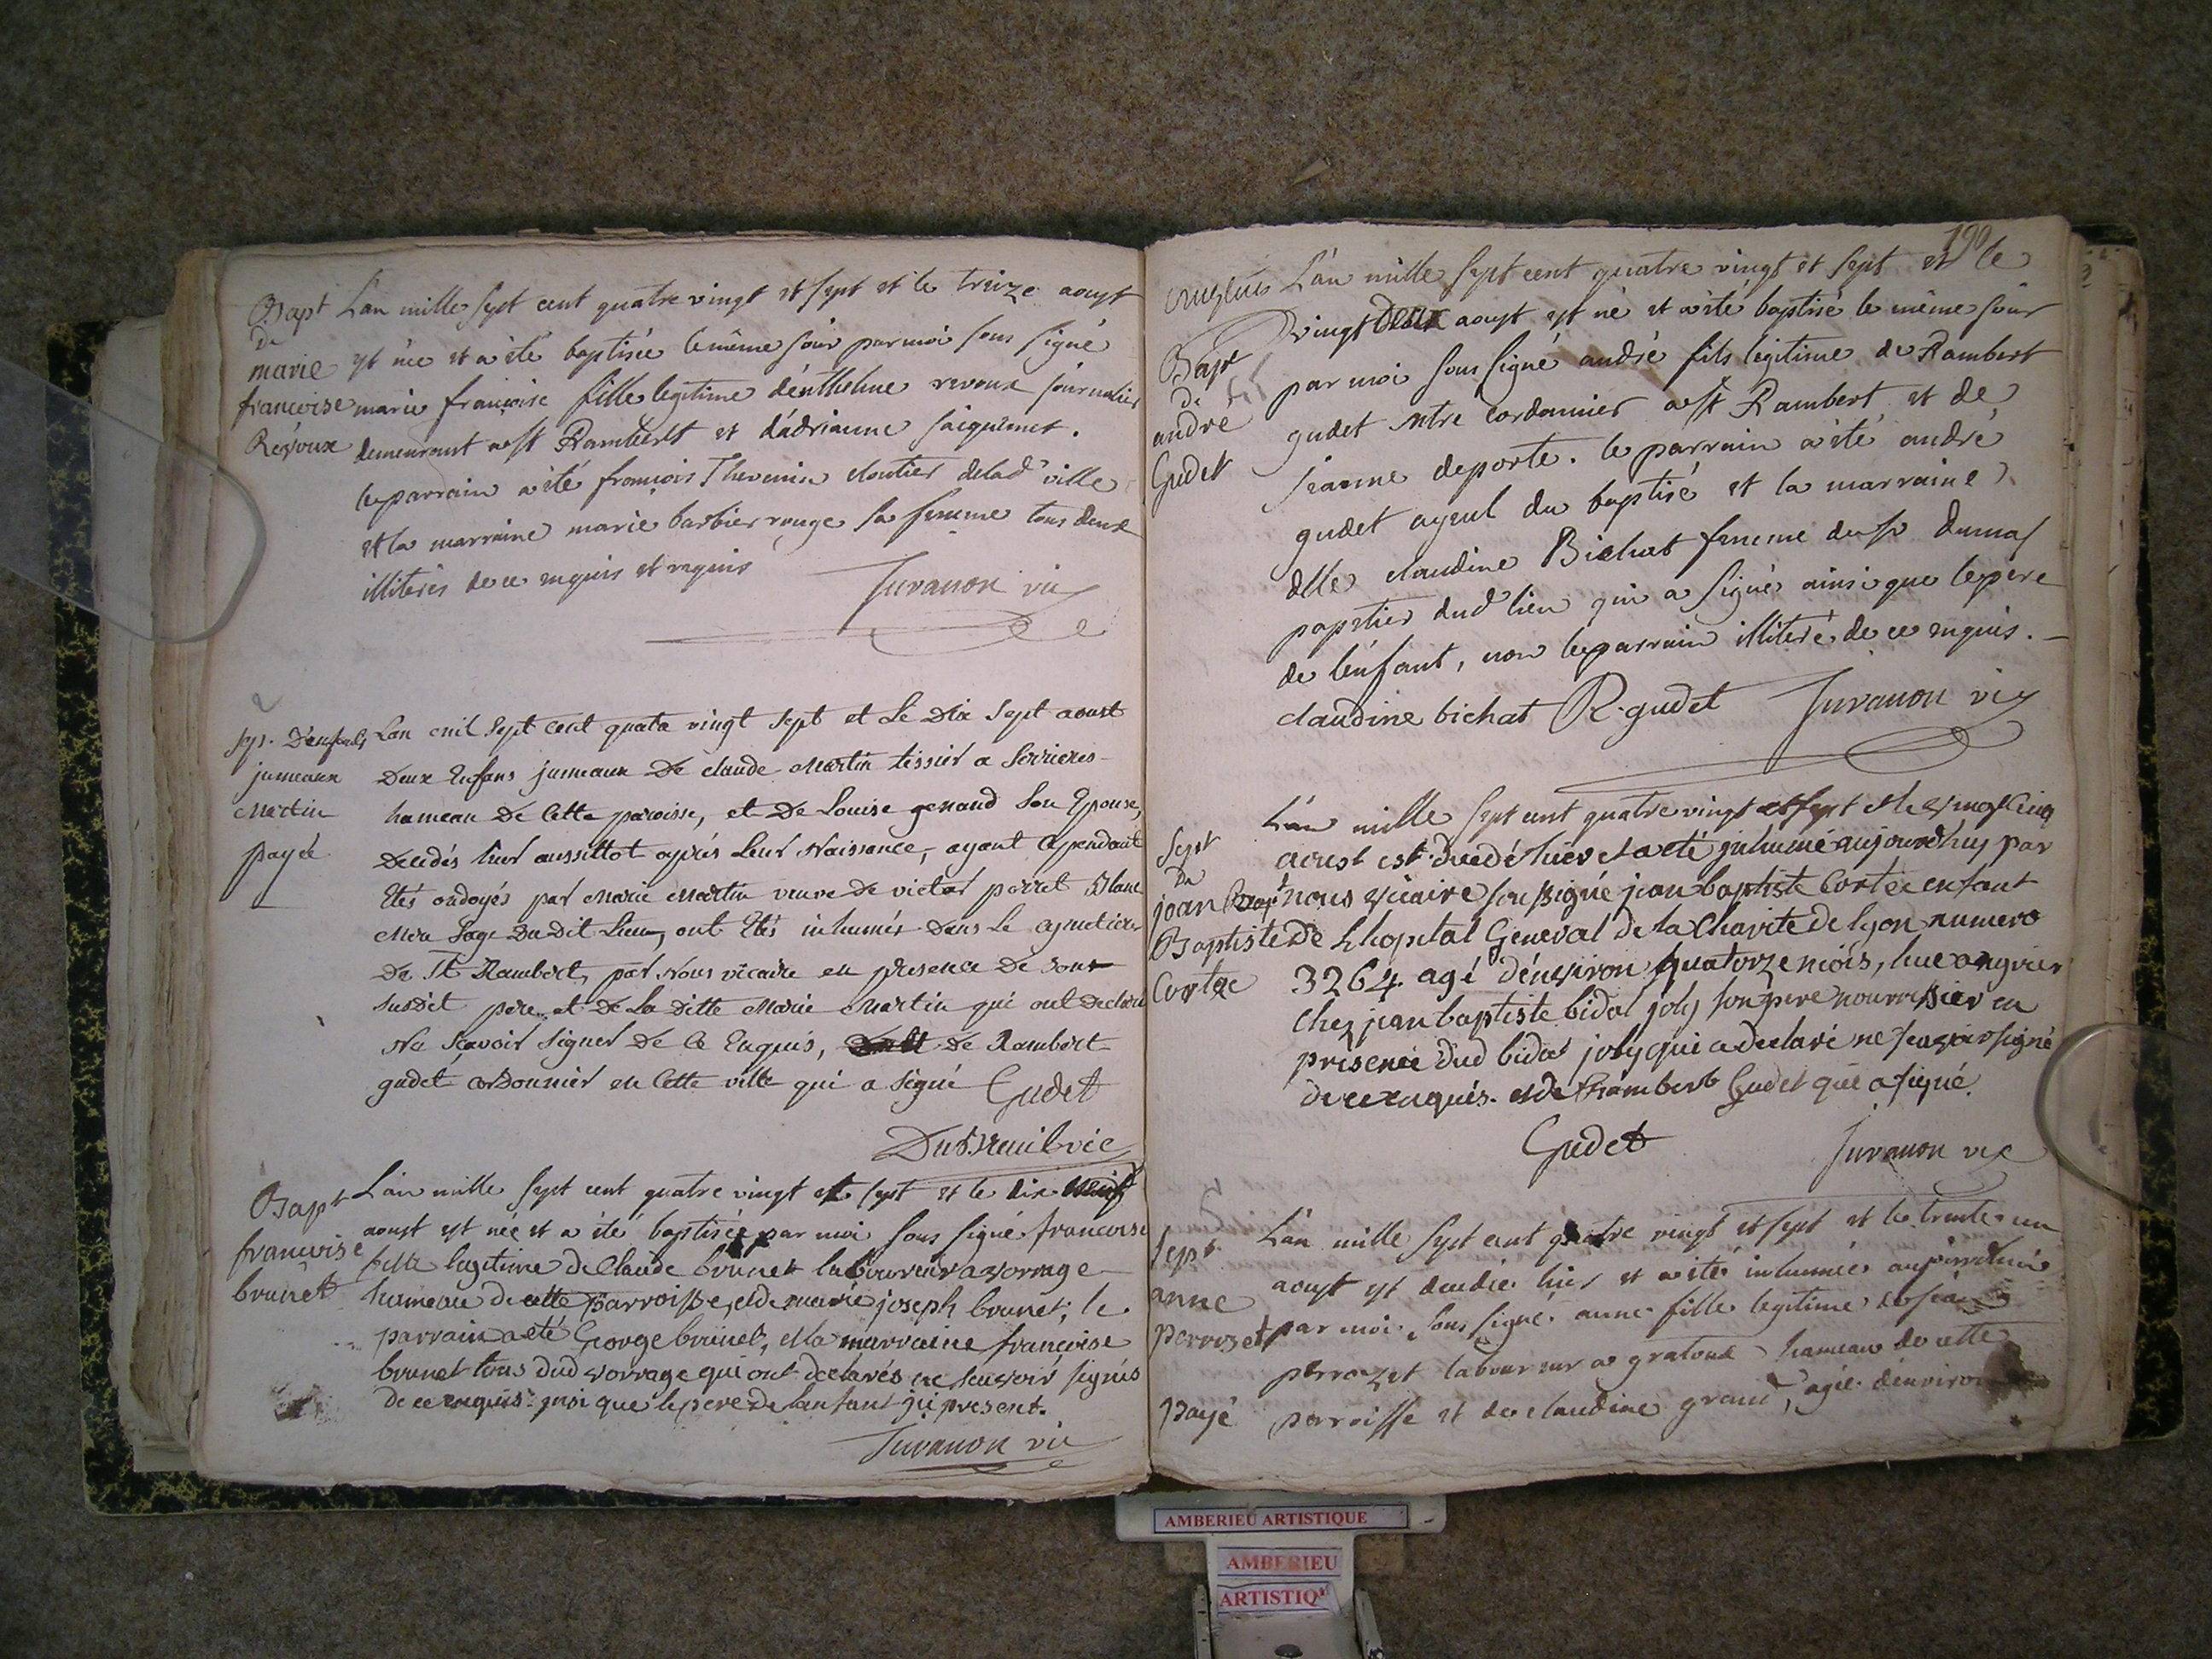 Bapt
de
marie
francoise
Revoux
L'an mille sept cent quatre vingt et sept et le treize aoust
est née et a été baptisée le même jour par moi sous signé
marie françoise fille legitime d'enthelme revoux journalier
demeurant a st Rambert et d'adrianne
le parrain a été françois Thevenin cloutier de lad ville
et la marraine marie barbier rouge sa femme tous deux
illiterés de ce enquis et requis
Juvanon vic
Sep. D'enfants
jumeaux
Martin
payé
Lan mil Sept cent quatre vingt Sept et Le Dix Sept aoust
Deux Enfans jumeaux De claude Martin tissier a Serrieres
hameau De Cette paroisse, et De Louise genaud Son Epouse,
Decedés hier aussittot aprés Leur Naissance, ayant Cependant
Etés ondoyés par Marie Martin veuve de victor perret Blanc
Mere Sage Du Dit Lieu, ont Etés inhumés Dans Le cymetiere
De St Rambert, par Nous vicaire en presence De
Susdit pere et De La Ditte Marie Martin qui ont Declaré
Ne Scavoir Signer De Ce Enquis, De Rambert
gudet cordonnier en Cette ville qui a Signé Gudet
vic
Bapt
francoise
brunet
L'an mille sept cent quatre vingt et sept et le dix neuf
aoust est née et a été baptisée par moi sous signé francoise
fille legitime de Claude brunet laboureur a vorrage
hameau de cette parroisse, et de marie joseph brunet; le
parrain a eté George brunet, et la marraine francoise
brunet tous dud vorrage qui ont declarés ne scavoir signés
de ce enquis le pere de lanfant ji present.
Juvanon vic
190
Bapt
de
andré
Gudet
L'an mille sept cent quatre vingt et sept et le
vingt deux aoust est né et a été baptisé le même jour
par moi sous signé andré fils legitime de Rambert
gudet mtre cordonnier a st Rambert et de
jeanne deporte. le parrain a été andré
gudet ayeul du baptisé et la marraine
dlle claudine Bichat femme du sr dumas
papetier dud lieu qui a signé ainsi que le pere
de l'enfant, non le parrain illiteré de ce enquis.
claudine bichat R. gudet Juvanon vic
Sept
de
jean
Baptiste
Cortée
L'an mille sept cent quatre vingt et sept et le vingt cinq
aoust est decedé hier et a eté jnhumé aujourdhuy par
nous vicaire soussigné jean baptiste Cortée enfant
De Lhopital General de la Charité de lyon numero
3264. agé d'environ quatorze mois,
chez jean baptiste bidal joly son pere nourrissier en
présence dud bidal joly qui a declaré ne scavoir signé
de ce enquis. et de Rambert Gudet qui a signé.
Gudet Juvanon vic
Sept.
anne
perrozet
payé
L'an mille sept cent quatre vingt et sept et le trente un
aoust est decedée hier et a été inhumée aujourdhui
par moi sous signé anne fille legitime de
perrozet laboureur a gratoux hameau de cette
parroisse et de claudine grand, agée d'environ
AMBERIEU ARTISTIQUE
AMBERIEU
ARTISTIQ